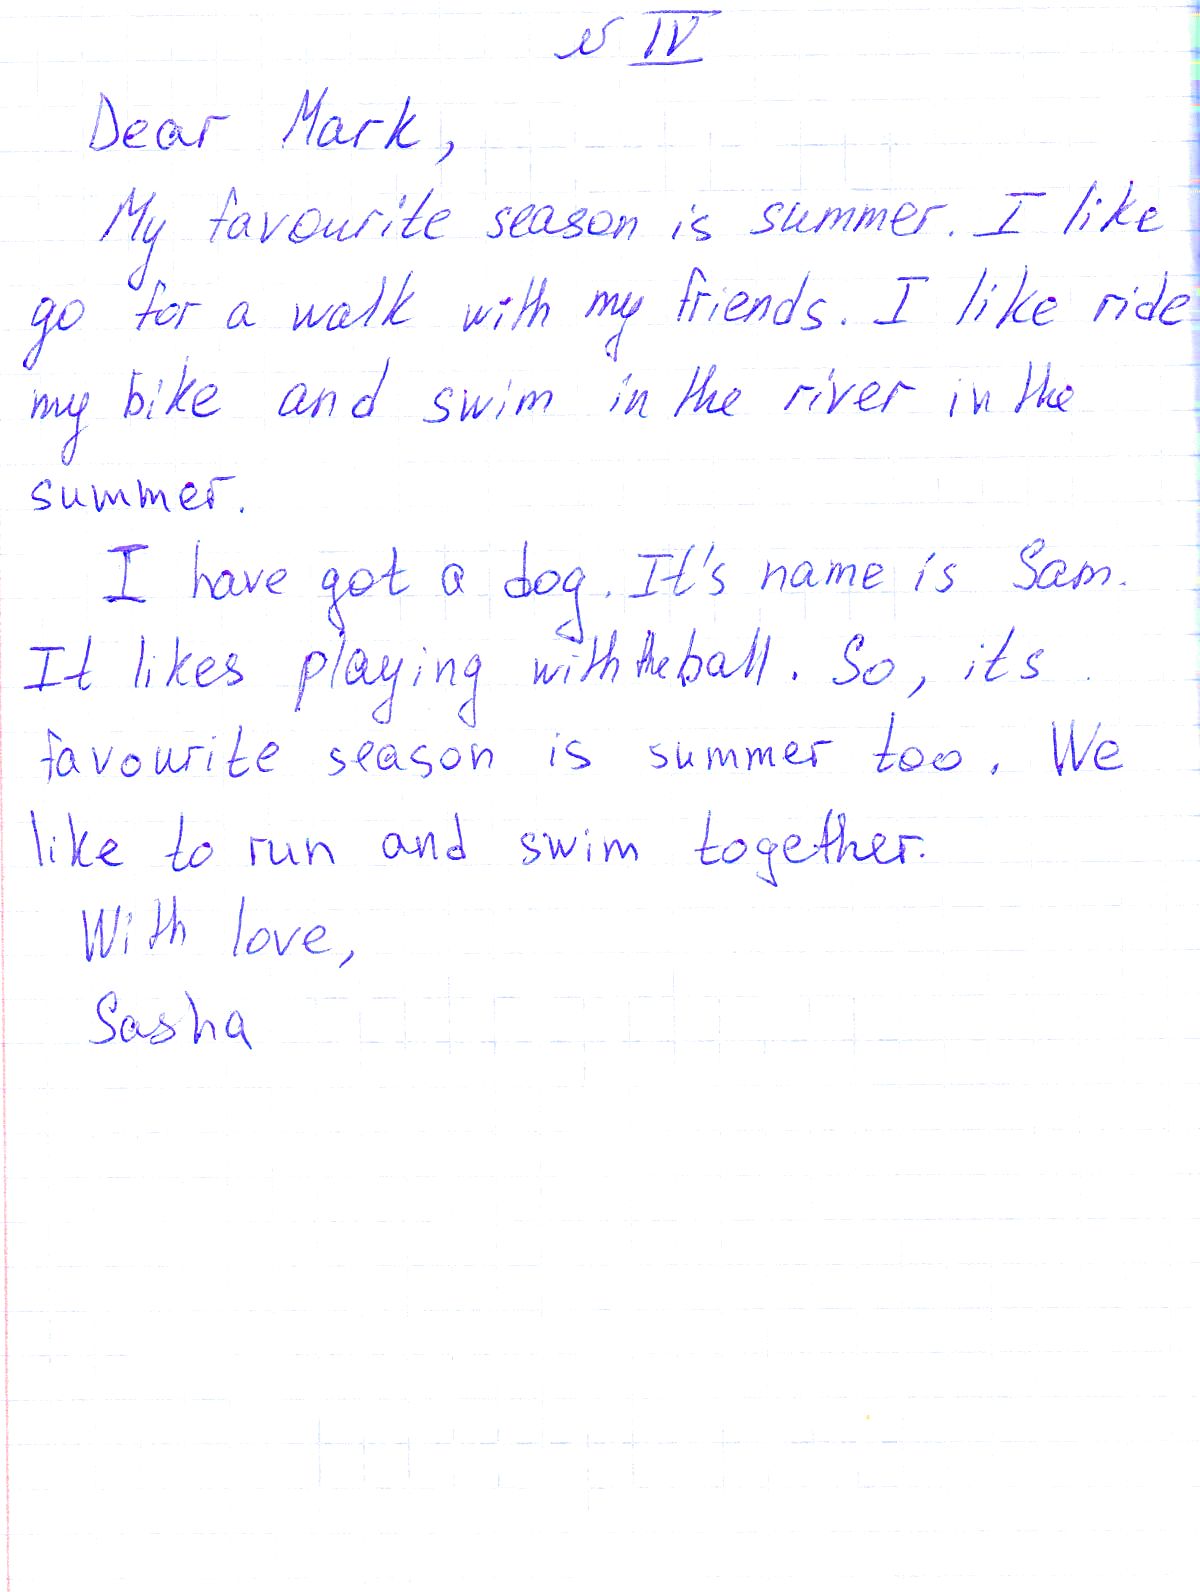 № IV
Dear Mark,
My favourite season is summer. I like
go for a walk with my friends. I like ride
my bike and swim in the river in the
summer.
I have got a dog. It's name is Sam.
It likes playing with the ball. So, its
favourite season is summer too. We
like to run and swim together.
With love,
Sasha